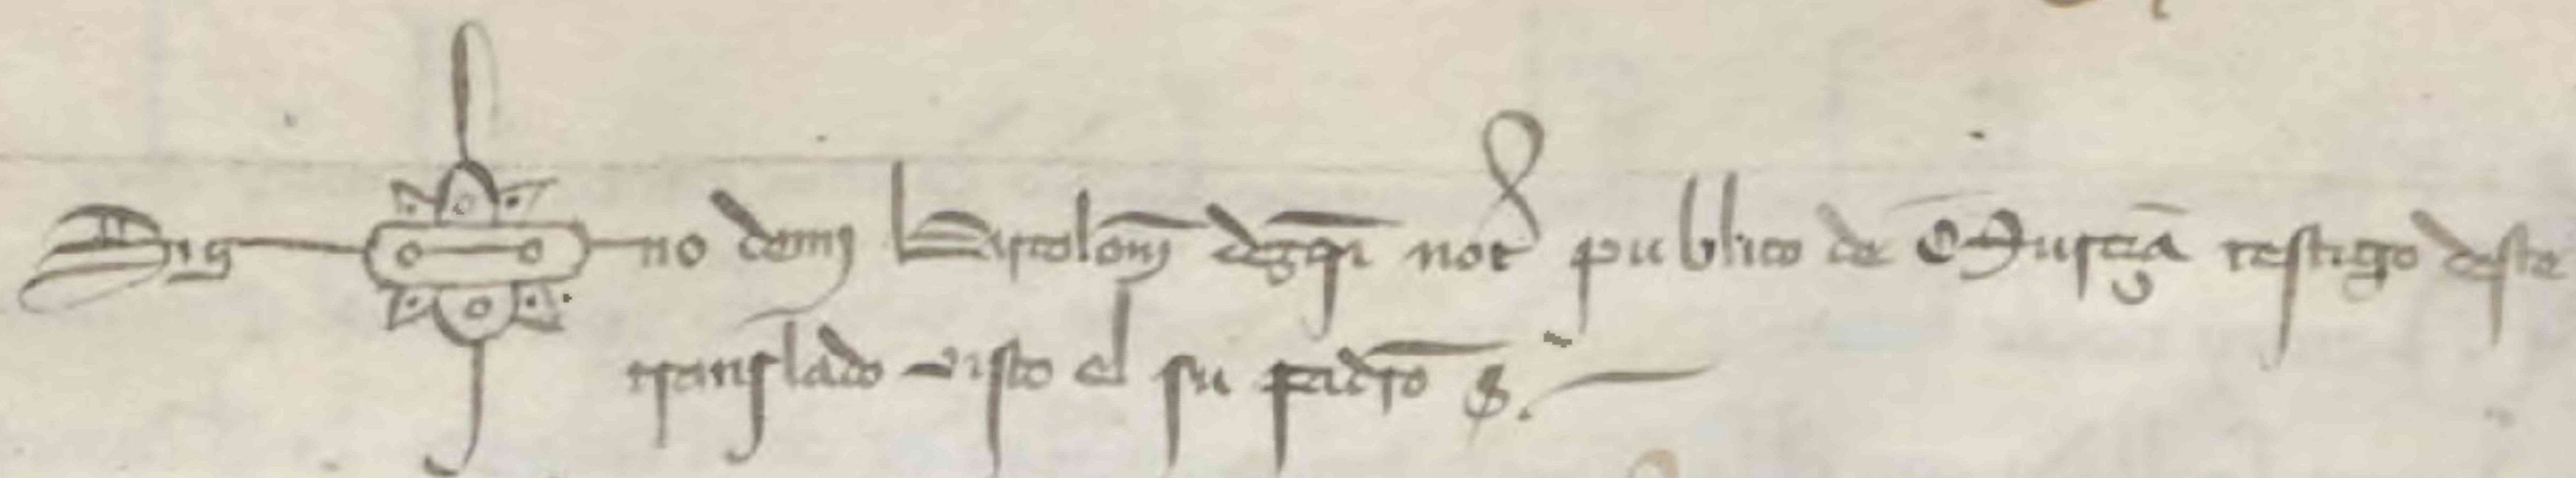 Sig no de mj Bartolome not publico de Murçia testigo deste
translado visto el su padro